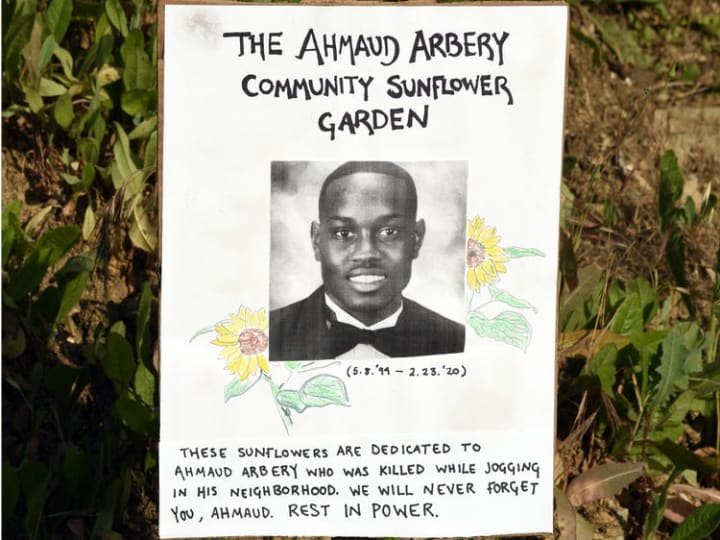 THE AHMAUD ARBERY
COMMUNITY SUNFLOWER
GARDEN
(5.8.'94 – 2.23.'20)
THESE SUNFLOWERS ARE DEDICATED TO
AHMAUD ARBERY WHO WAS KILLED WHILE JOGGING
IN HIS NEIGHBORHOOD. WE WILL NEVER FORGET
YOU, AHMAUD. REST IN POWER.